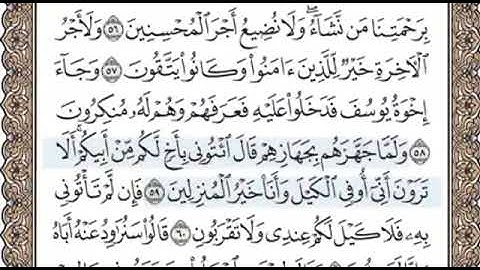 بِرَحْمَتِنَا مَن نَّشَآءُ ۖ وَلَا نُضِيعُ أَجْرَ ٱلْمُحْسِنِينَ ٥٦ وَلَأَجْرُ
ٱلْآخِرَةِ خَيْرٌ لِّلَّذِينَ ءَامَنُوا۟ وَكَانُوا۟ يَتَّقُونَ ٥٧ وَجَآءَ
إِخْوَةُ يُوسُفَ فَدَخَلُوا۟ عَلَيْهِ فَعَرَفَهُمْ وَهُمْ لَهُۥ مُنكِرُونَ
٥٨ وَلَمَّا جَهَّزَهُم بِجَهَازِهِمْ قَالَ ٱئْتُونِى بِأَخٍ لَّكُم مِّنْ أَبِيكُمْ ۚ أَلَا
تَرَوْنَ أَنِّىٓ أُوفِى ٱلْكَيْلَ وَأَنَا۠ خَيْرُ ٱلْمُنزِلِينَ ٥٩ فَإِن لَّمْ تَأْتُونِى
بِهِۦ فَلَا كَيْلَ لَكُمْ عِندِى وَلَا تَقْرَبُونِ ٦٠ قَالُوا۟ سَنُرَٰوِدُ عَنْهُ أَبَاهُ